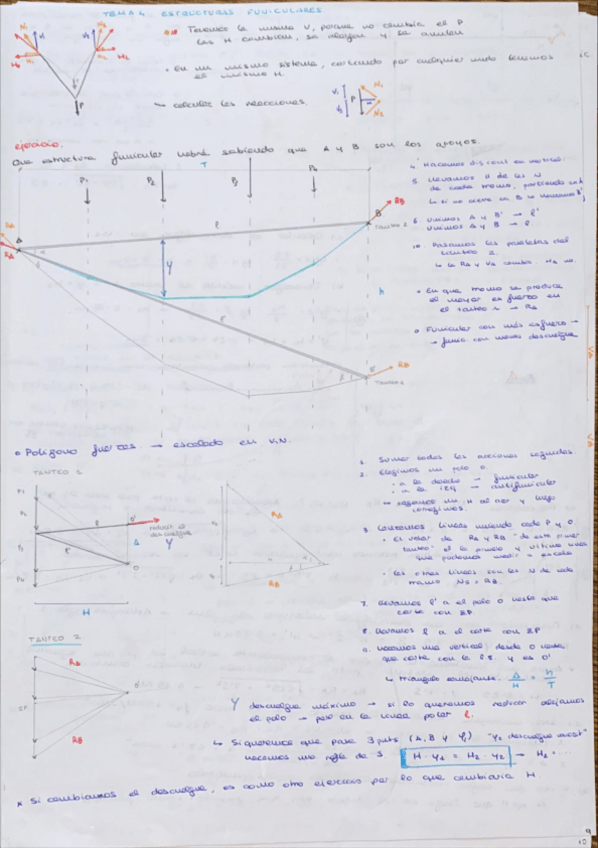 TEMA 4. ESTRUCTURAS FUNICULARES
Tenemos la misma V, porque no cambia el P
las H cambian, se alargan y se anulan
• En un mismo sistema, cortando por cualquier nudo tenemos
el mismo H.
→ calcular las reacciones.
ejercicio.
Que estructura funicular habrá sabiendo que A y B son los apoyos.
T
P1
P2
P3
P4
RB
B
Tanteo 2
A
RA
Y
h
B'
RB
Tanteo 1
4. Hacemos discont en vertical
5. Llevamos
de cada tramo, partiendo
6. Unimos A y B' → l'
Unimos A y B → l.
10. Pasamos las paralelas del
tanteo 2.
↳ la RA y VA cambia. HA no.
• En que tramo se produce
el mayor esfuerzo en
el tanteo 1 → RA
• Funicular con más esfuerzo →
→ funic con menor descuelgue
• Polígono fuerzas. → escalado en kN.
TANTEO 1
P1
P4
O'
reducir el
descuelgue
Δ
Y
O
H
RA
RB
1. Sumar todas las acciones seguidas
2. Elegimos un polo O.
· a la derecha → funicular
· a la izq → antifunicular
→ hacemos un H al azar y luego
corregimos.
3. Lanzamos líneas uniendo cada P y O.
• El valor de RA y RB "de este primer
tanteo" es la primera y última línea
que podremos medir a escala
• Las otras líneas son las N de cada
tramo N5 = RB.
7. Llevamos l' a el polo O hasta que
corte con ΣP
8. Llevamos l a el corte con ΣP
9. Hacemos una vertical desde O hasta
que corte con la l.E. y es O'
↳ triángulo semejante: Δ/H = h/T
TANTEO 2
RA
O'
ΣP
RB
Y descuelgue máximo → si lo queremos reducir alejamos
el polo → pero en la línea polar l.
↳ Si queremos que pase 3 puts (A, B y Y2) "Y2 descuelgue
hacemos una regla de 3 H · Y1 = H2 · Y2 → H2 = ·
* Si cambiamos el descuelgue, es como otro ejercicio por lo que cambiaría H
9
10